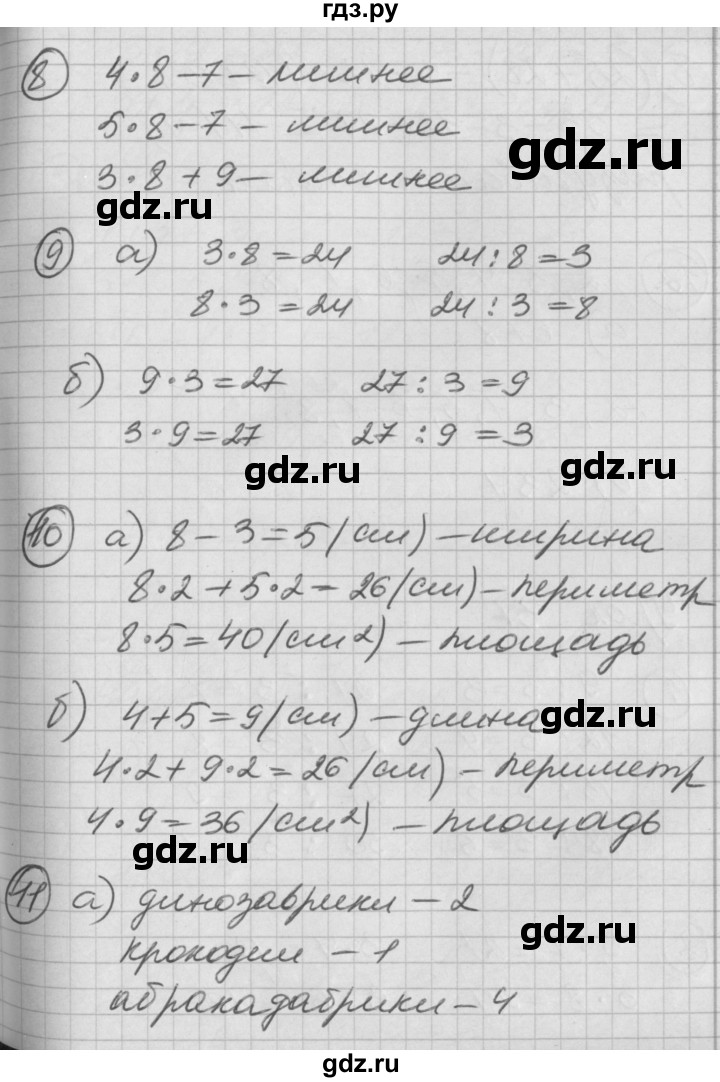 гдз.ру
8 4·8-7 - лишнее
5·8-7 - лишнее
gdz.ru
3·8+9 - лишнее
gdz.ru
9 а) 3·8=24 24:8=3
8·3=24 24:3=8
б) 9·3=27 27:3=9
3·9=27 27:9=3
gdz.ru gdz.ru
10 а) 8-3=5(см) - ширина
8·2+5·2=26(см) - периметр
8·5=40(см²) - площадь
б) 4+5=9(см) - длина
gdz.ru
4·2+9·2=26(см) - периметр
4·9=36(см²) - площадь
gdz.ru
11 а) динозаврики - 2
gdz.ru
крокодил - 1
абракадабрики - 4
gdz.ru